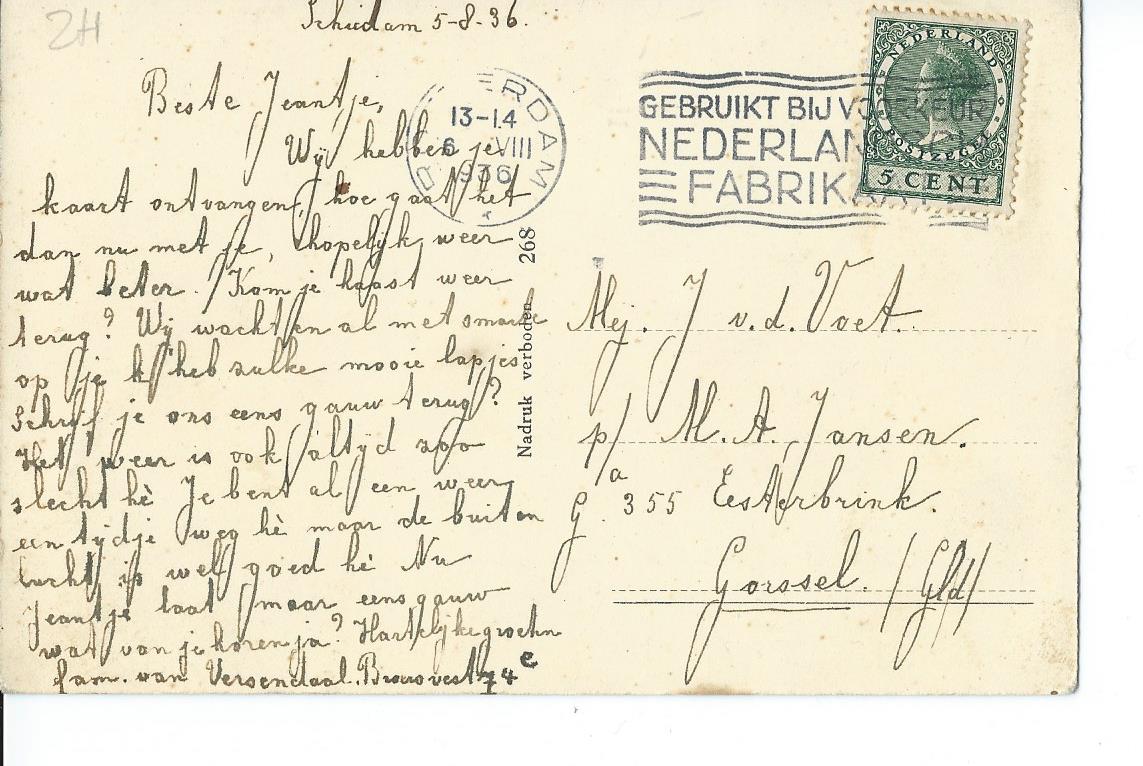 2H
Schiedam 5-8-36.
Beste Jeantje,
Wij hebben je
kaart ontvangen, hoe gaat het
dan nu met je, hopelijk weer
wat beter. Kom je haast weer
terug? Wij wachten al met smarte
op je k heb zulke mooie lapjes
Schrijf je ons eens gauw terug?
Het weer is ook altijd zoo
slecht hè Je bent al een weer
een tijdje weg hè maar de buiten
lucht is wel goed hè Nu
Jeantje laat maar eens gauw
wat van je horen ja? Hartelijke groetn
fam. van Versendaal. 74 e
RDAM
13-14
6 VIII
1936
GEBRUIKT BIJ VOORKEUR
NEDERLAN
FABRIK
NEDERLAND
POSTZEGEL
5 CENT
Nadruk verboden 268
Mej. J v.d. Voet.
p/a M. A. Jansen.
G 355 Eesterbrink.
Gorssel. (Gld)